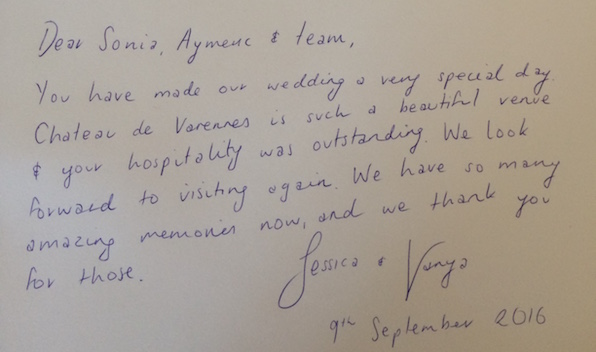 Dear Sonia, Aymeric & team,
You have made our wedding a very special day.
Chateau de Varennes is such a beautiful venue
& your hospitality was outstanding. We look
forward to visiting again. We have so many
amazing memories now, and we thank you
for those.
Jessica & Vanya
9th September 2016